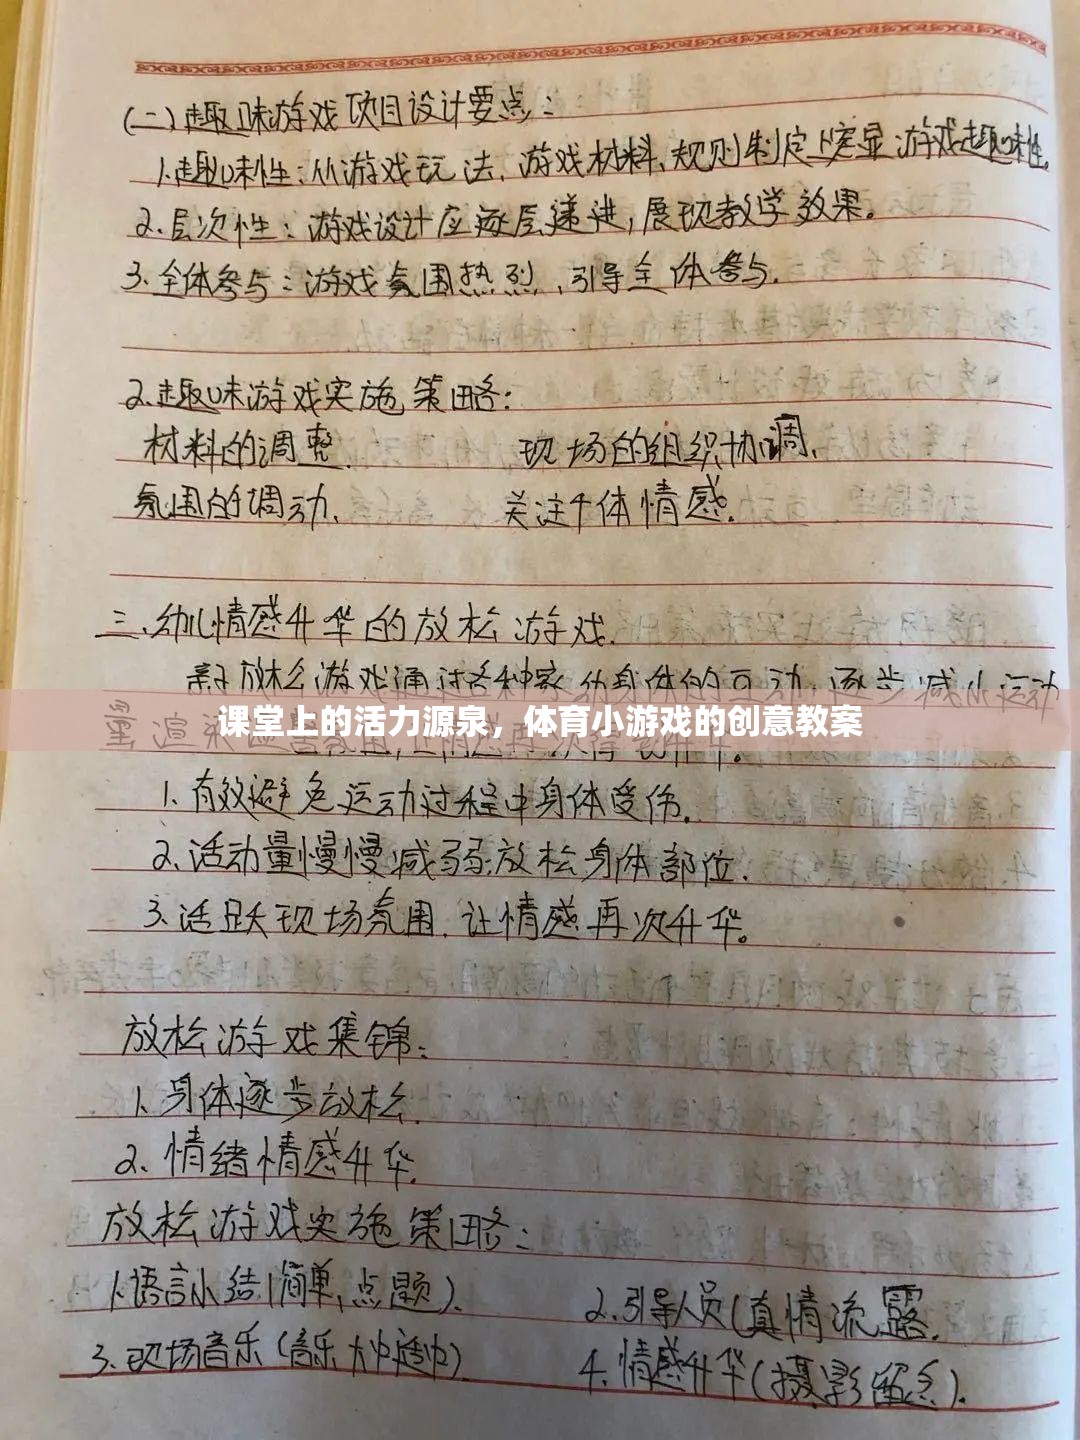 (二)趣味游戏项目设计要点:
1.趣味性:从游戏玩法、游戏材料、规则制定上突显游戏趣味性。
2.层次性:游戏设计应逐层递进,展现教学效果。
3.全体参与:游戏氛围热烈、引导全体参与.
2.趣味游戏实施策略:
材料的调整. 现场的组织协调、
氛围的调动、 关注个体情感.
三.幼儿情感升华的放松游戏.
亲子放松游戏通过各种家 身体的互动,逐步减小运动
课堂上的活力源泉，体育小游戏的创意教案
量渲染 再次得到升华。
1.有效避免运动过程中身体受伤.
2.活动量慢慢减弱放松身体部位.
3.活跃现场氛围.让情感再次升华。
放松游戏集锦:
1.身体逐步放松.
2.情绪情感升华.
放松游戏实施策略:
1.语言小结(简单,点题). 2.引导人员(真情流露.
3.现场音乐(音乐 ) 4.情感升华(摄影留念).